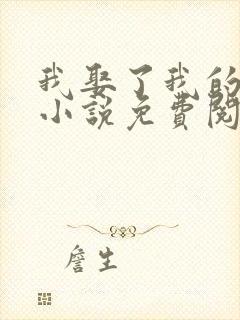 我娶了我的
小说免费阅
詹生